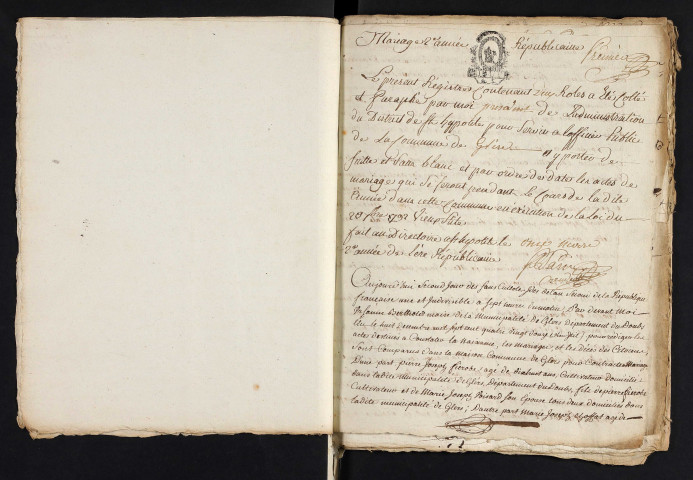 Mariage 2e année Républicaine
Premier
Le présent Registre Contenant six Roles a Eté Cotté
et Paraphé par moi président de L'administration
du District de St hypolite pour Servir a l'officier Public
de La Commune de Glère a y porter de
suitte et sans blanc et par ordre de dates les actes de
mariage qui se feront pendant le Cours de la dite
année dans cette Commune en exécution de la loi du
20 7bre 1792 vieux stile
fait au Directoire a St hypolite le onze nivose
2e année de l'ère Républicaine
Aujourd'hui Second Jour des sans Culotides de l'an Second de la République
française une et Indivisible a Sept heures du matin, Par devant Moi
Berthold maire de la Municipalité de Glère département du Doubs
Elu le huit décembre mil sept cent quatre vingt douze (vieux stil) pour rédiger les
actes destinés a Constater la Naissance, les Mariages, et les Décès des Citoyens
Sont Comparus dans la Maison Commune de Glère pour Contracter Mariage
D'une part, pierre Joseph agé de ans, Cultivateur domicilié
dans la dite Municipalité de Glère, Département du Doubs, fils de pierre
Cultivateur et de Marie Joseph son Epouse tous deux domiciliés dans
la dite municipalité de Glère; D'autre part Marie Joseph agée de